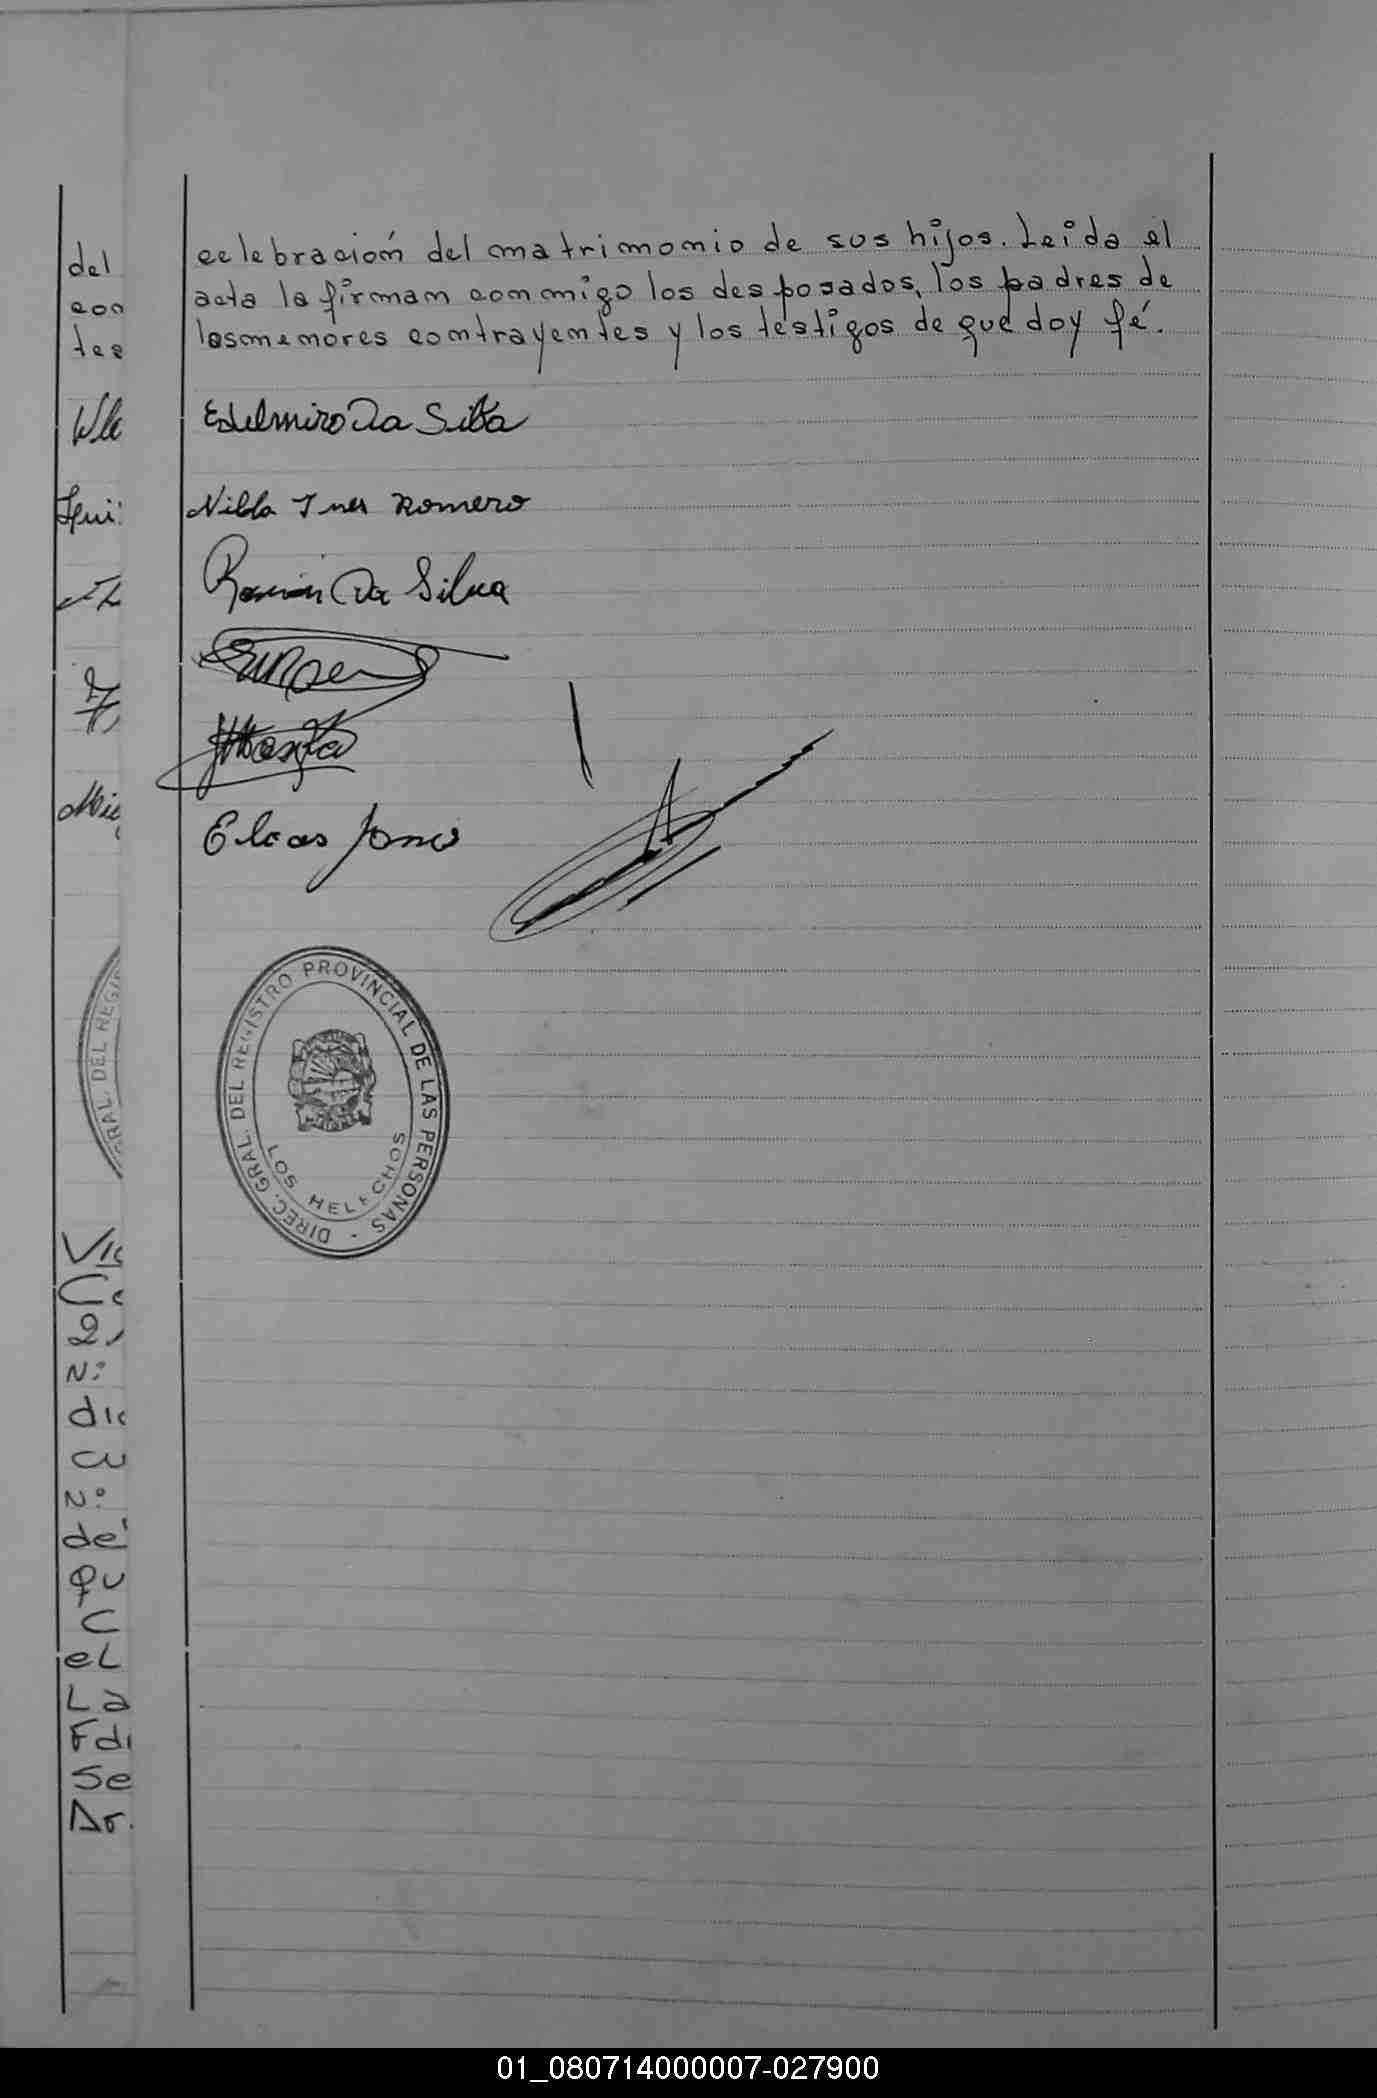 celebración del matrimonio de sus hijos. Leida el
acta la firman conmigo los desposados, los padres de
los menores contrayentes y los testigos de que doy fé.
Edelmiro Da Silva
Nilda Ines Romero
Ramón Da Silva
Elcas
DIREC. GRAL. DEL REGISTRO PROVINCIAL DE LAS PERSONAS -
LOS HELECHOS
del
con
tes
GRAL. DEL REGIS
N:
dic
N:
de
qu
C
eL
La
Fdi
Se
Dr.
01_080714000007-027900